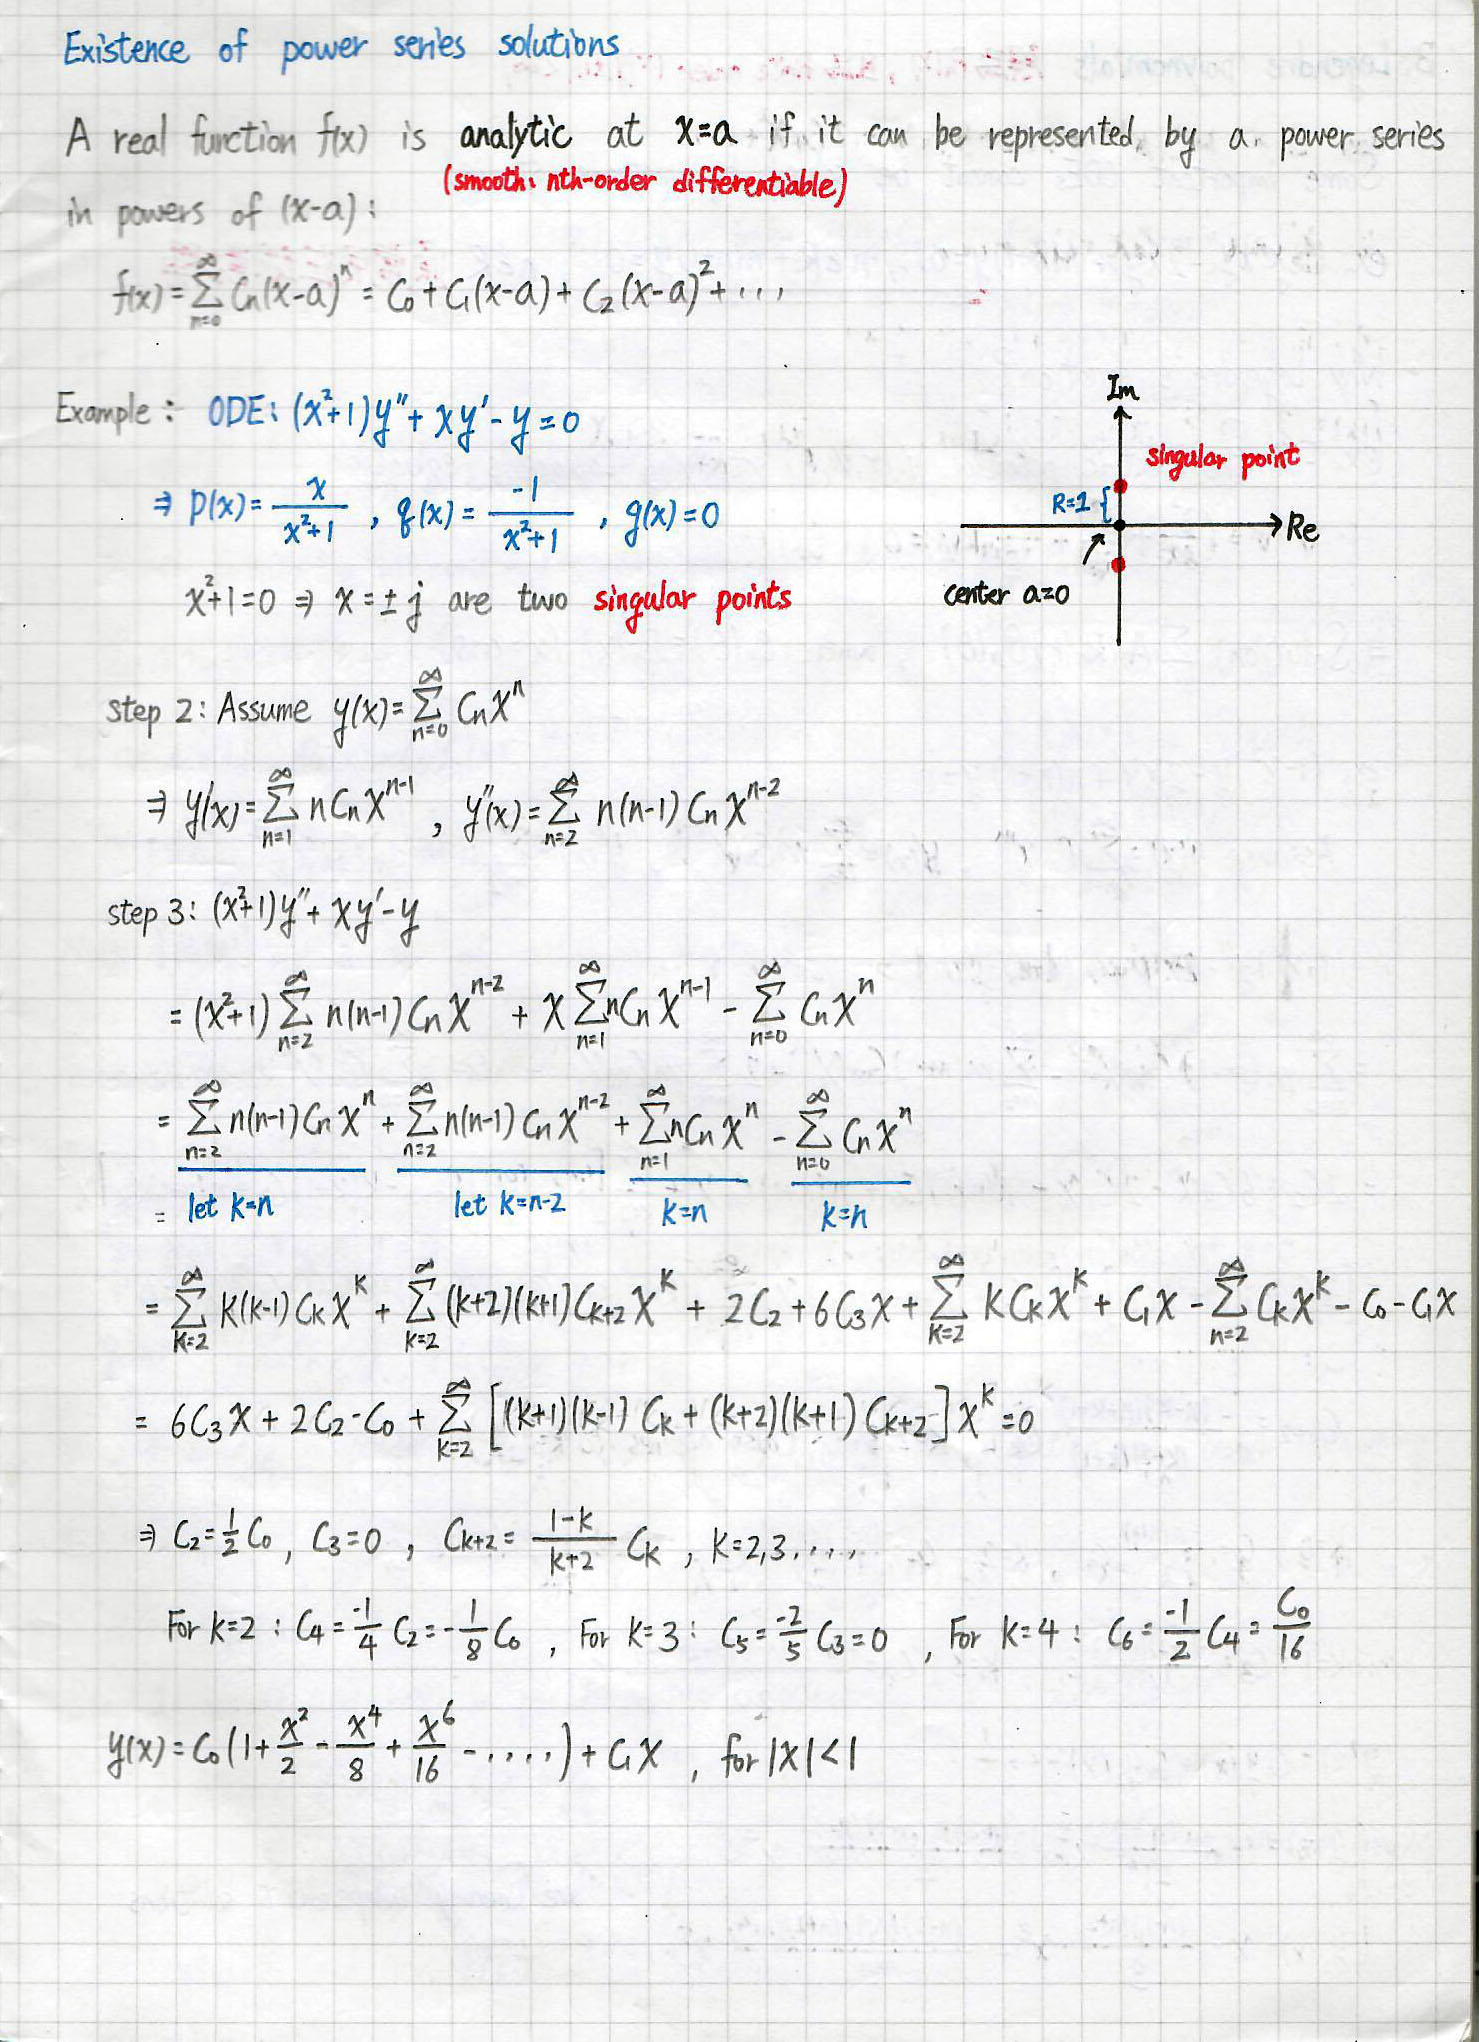 Existence of power series solutions
A real function f(x) is analytic at x=a if it can be represented by a power series
(smooth: nth-order differentiable)
in powers of (x-a):
f(x) = ∑_{n=0}^{∞} Cn(x-a)^n = C₀ + C₁(x-a) + C₂(x-a)² + ...
Example: ODE: (x²+1)y'' + xy' - y = 0
⇒ P(x) = x/(x²+1), q(x) = -1/(x²+1), g(x) = 0
x²+1=0 ⇒ x = ± j are two singular points
Im
singular point
R=1
Re
center a=0
step 2: Assume y(x) = ∑_{n=0}^{∞} Cn x^n
⇒ y'(x) = ∑_{n=1}^{∞} n Cn x^{n-1}, y''(x) = ∑_{n=2}^{∞} n(n-1) Cn x^{n-2}
step 3: (x²+1)y'' + xy' - y
= (x²+1) ∑_{n=2}^{∞} n(n-1) Cn x^{n-2} + x ∑_{n=1}^{∞} n Cn x^{n-1} - ∑_{n=0}^{∞} Cn x^n
= ∑_{n=2}^{∞} n(n-1) Cn x^n + ∑_{n=2}^{∞} n(n-1) Cn x^{n-2} + ∑_{n=1}^{∞} n Cn x^n - ∑_{n=0}^{∞} Cn x^n
= let k=n let k=n-2 k=n k=n
= ∑_{k=2}^{∞} k(k-1) Ck x^k + ∑_{k=2}^{∞} (k+2)(k+1) C_{k+2} x^k + 2C₂ + 6C₃x + ∑_{k=2}^{∞} k Ck x^k + C₁x - ∑_{n=2}^{∞} Ck x^k - C₀ - C₁x
= 6C₃x + 2C₂ - C₀ + ∑_{k=2}^{∞} [(k+1)(k-1) Ck + (k+2)(k+1) C_{k+2}] x^k = 0
⇒ C₂ = 1/2 C₀, C₃ = 0, C_{k+2} = (1-k)/(k+2) Ck, k=2,3,...,
For k=2: C₄ = -1/4 C₂ = -1/8 C₀, For k=3: C₅ = -2/5 C₃ = 0, For k=4: C₆ = -1/2 C₄ = C₀/16
y(x) = C₀(1 + x²/2 - x⁴/8 + x⁶/16 - ....) + C₁x, for |x|<1